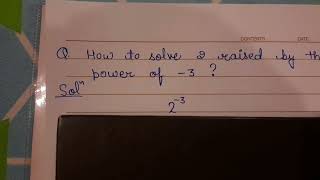 CONTENTS DATE
Q How to solve 2 raised by th
power of -3 ?
Solⁿ
2⁻³